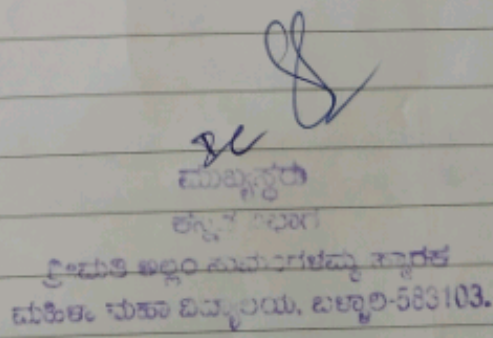 ಮುಖ್ಯಸ್ಥರು
ಕನ್ನಡ ವಿಭಾಗ
ಶ್ರೀಮತಿ ಅಲ್ಲಂ ಸುಮಂಗಳಮ್ಮ ಸ್ಮಾರಕ
ಮಹಿಳಾ ಮಹಾ ವಿದ್ಯಾಲಯ, ಬಳ್ಳಾರಿ-583103.